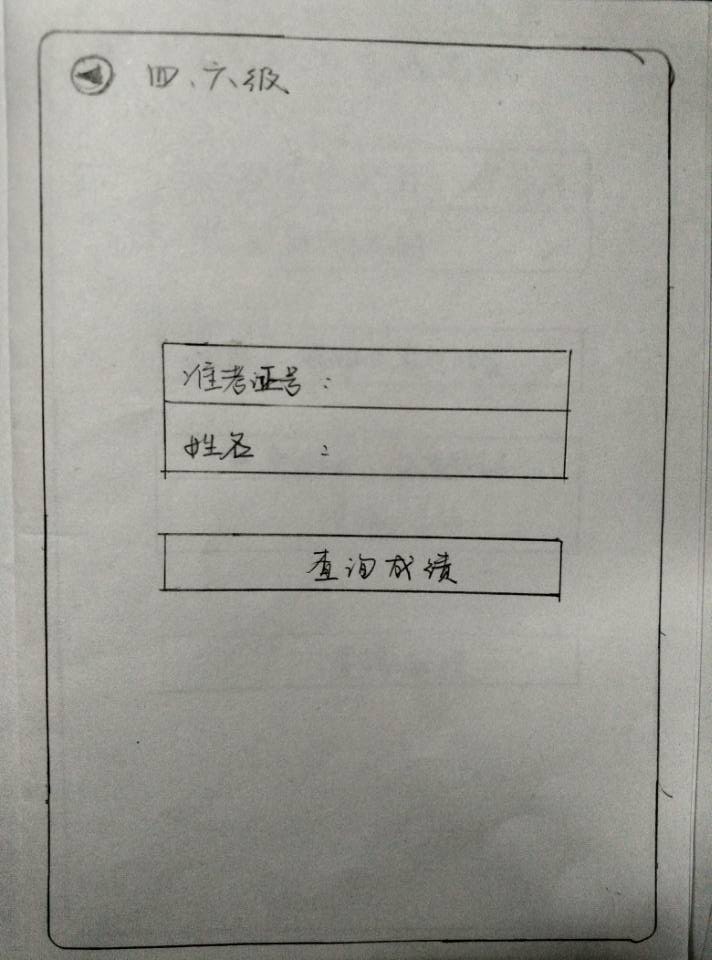 四、六级
准考证号：
姓名：
查询成绩